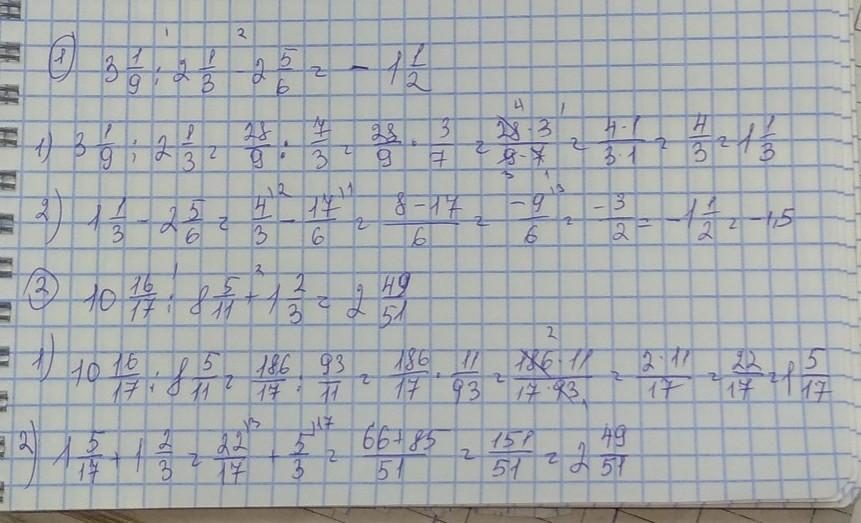 ① 3 1/9 : 2 1/3 - 2 5/6 = - 1 1/2
1) 3 1/9 : 2 1/3 = 28/9 : 7/3 = 28/9 · 3/7 = 28·3/9·7 = 4·1/3·1 = 4/3 = 1 1/3
2) 1 1/3 - 2 5/6 = 4/3 - 17/6 = 8-17/6 = -9/6 = -3/2 = -1 1/2 = -1,5
② 10 16/17 : 8 5/11 + 1 2/3 = 2 49/51
1) 10 16/17 : 8 5/11 = 186/17 : 93/11 = 186/17 · 11/93 = 186·11/17·93 = 2·11/17 = 22/17 = 1 5/17
2) 1 5/17 + 1 2/3 = 22/17 + 5/3 = 66+85/51 = 151/51 = 2 49/51